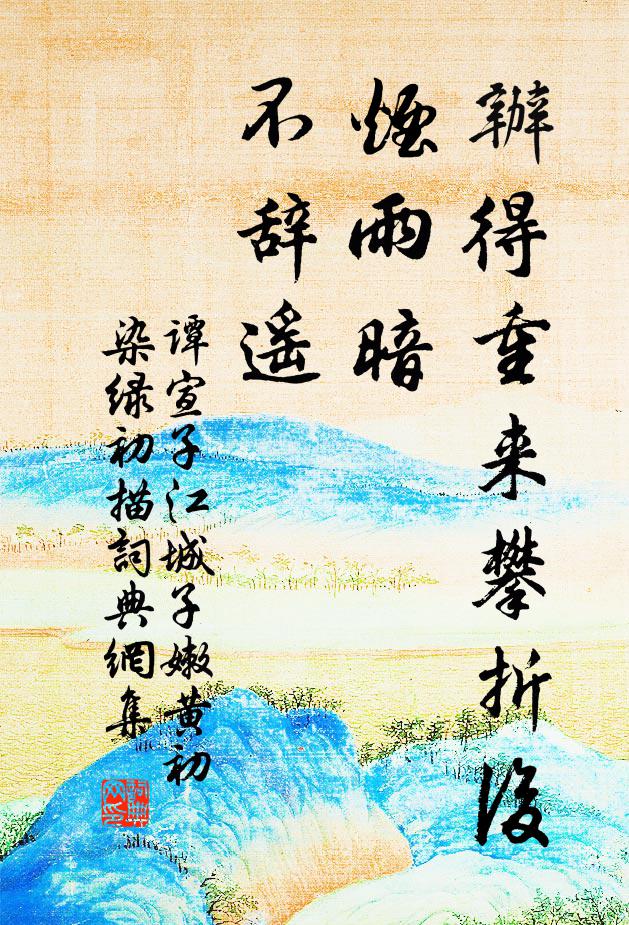 辦得重来攀折後
煙雨暗
不辞遥
谭宣子江城子嫩黄初
染绿初描詞典網集